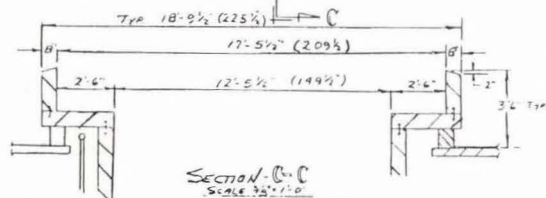 C
TYP 18'-9½" (225½)
8" 17'-5½" (209½) 8"
2'-6" 12'-5½" (149½") 2'-6" 2"
3'-6" TYP
SECTION - C-C
SCALE 1'-0"